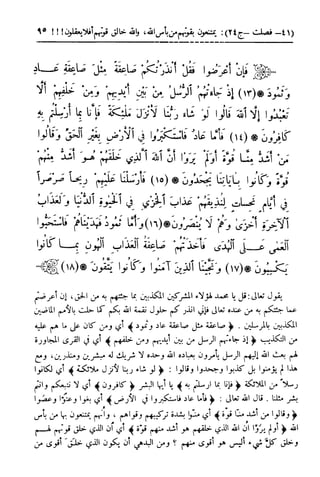 (٤١ – فصلت – ج٢٤): يمتنعون بقوتهم من بأس الله، والله خالق قوتهم أفلا يعقلون!!! ٩٥
فَإِنْ أَعْرَضُوا فَقُلْ أَنْذَرْتُكُمْ صَاعِقَةً مِثْلَ صَاعِقَةِ عَادٍ
وَثَمُودَ * (١٣) إِذْ جَاءَتْهُمُ الرُّسُلُ مِنْ بَيْنِ أَيْدِيهِمْ وَمِنْ خَلْفِهِمْ أَلَّا
تَعْبُدُوا إِلَّا اللَّهَ قَالُوا لَوْ شَاءَ رَبُّنَا لَأَنْزَلَ مَلَائِكَةً فَإِنَّا بِمَا أُرْسِلْتُمْ بِهِ
كَافِرُونَ * (١٤) فَأَمَّا عَادٌ فَاسْتَكْبَرُوا فِي الْأَرْضِ بِغَيْرِ الْحَقِّ وَقَالُوا
مَنْ أَشَدُّ مِنَّا قُوَّةً أَوَلَمْ يَرَوْا أَنَّ اللَّهَ الَّذِي خَلَقَهُمْ هُوَ أَشَدُّ مِنْهُمْ
قُوَّةً وَكَانُوا بِآيَاتِنَا يَجْحَدُونَ * (١٥) فَأَرْسَلْنَا عَلَيْهِمْ رِيحًا صَرْصَرًا
فِي أَيَّامٍ نَحِسَاتٍ لِنُذِيقَهُمْ عَذَابَ الْخِزْيِ فِي الْحَيَوٰةِ الدُّنْيَا وَلَعَذَابُ
الْآخِرَةِ أَخْزَىٰ وَهُمْ لَا يُنْصَرُونَ * (١٦) وَأَمَّا ثَمُودُ فَهَدَيْنَاهُمْ فَاسْتَحَبُّوا
الْعَمَىٰ عَلَى الْهُدَىٰ فَأَخَذَتْهُمْ صَاعِقَةُ الْعَذَابِ الْهُونِ بِمَا كَانُوا
يَكْسِبُونَ * (١٧) وَنَجَّيْنَا الَّذِينَ آمَنُوا وَكَانُوا يَتَّقُونَ * (١٨)
يقول تعالى: قل يا محمد لهؤلاء المشركين المكذبين بما جئتهم به من الحق، إن أعرضتم
عما جئتكم به من عند الله تعالى فإني أنذركم حلول نقمة الله بكم كما حلت بالأمم الماضين
المكذبين بالمرسلين. ﴿صاعقة مثل صاعقة عاد وثمود﴾ أي ومن كان على ما هم عليه
من التكذيب ﴿إذ جاءتهم الرسل من بين أيديهم ومن خلفهم﴾ أي في القرى المجاورة
لهم بعث الله إليهم الرسل يأمرون بعباده الله وحده لا شريك له مبشرين ومنذرين، ومع
هذا لم يؤمنوا بل كذبوا وجحدوا وقالوا: ﴿لو شاء ربنا لأنزل ملائكة﴾ أي لكانوا
رسلاً من الملائكة ﴿فإنا بما أرسلتم به﴾ يا أيها البشر ﴿كافرون﴾ أي لا نتبعكم وأنتم
بشر مثلنا. قال الله تعالى: ﴿فأما عاد فاستكبروا في الأرض﴾ أي بغوا وعتوا وعصوا
﴿وقالوا من أشد منا قوة﴾ أي منوا بشدة تركيبهم وقواهم، وأنهم يمتنعون بها من بأس
الله ﴿أولم يروا أن الله الذي خلقهم هو أشد منهم قوة﴾ أي أن الذي خلق قوتهم لهم
وخلق كل شيء أليس هو أقوى منهم؟ ومن البدهي أن يكون الذي خلق أقوى من